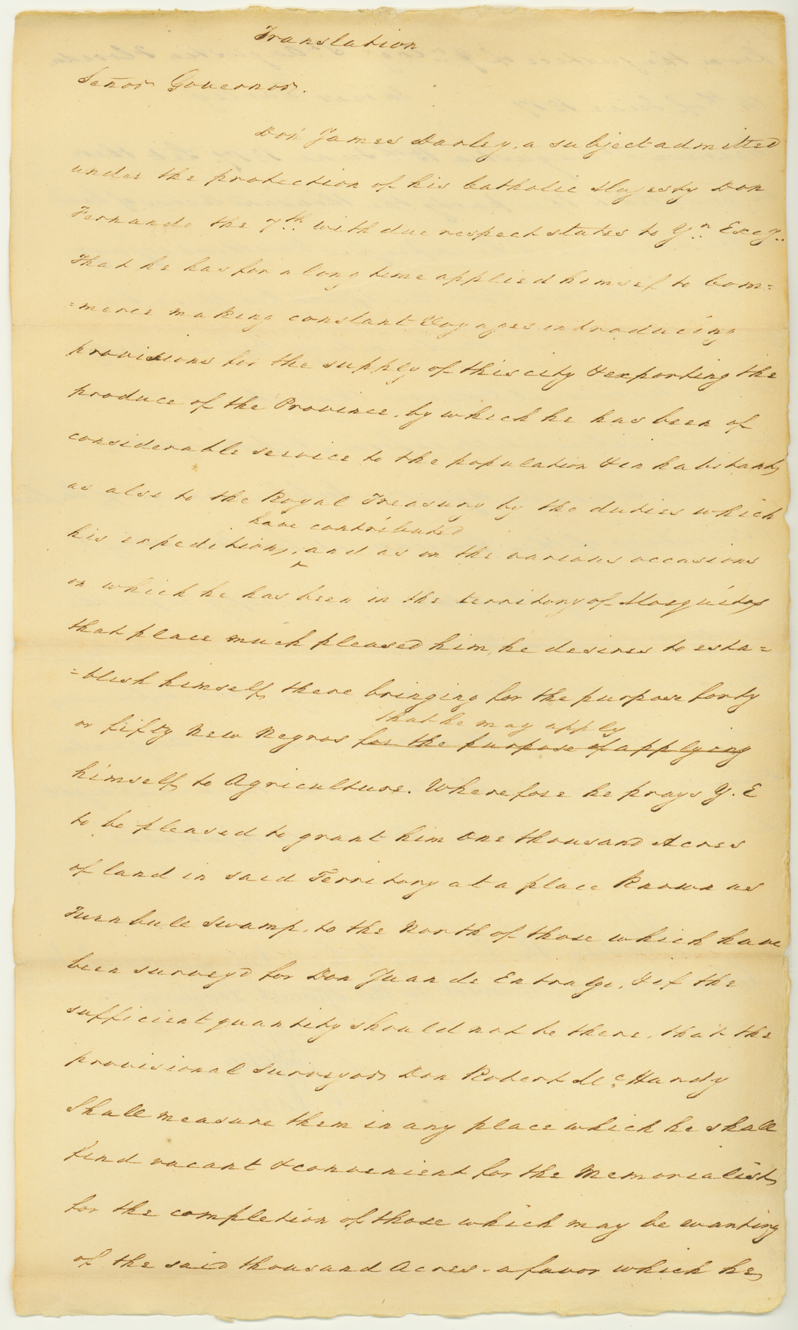 Translation
Señor Governor.
Don James Darley, a subject admitted
under the protection of his Catholic Majesty Don
Fernando the 7th. with due respect states to Yr. Excy.
That he has for a long time applied himself to Com=
=merce making constant Voyages introducing
provisions for the supply of this city & exporting the
produce of the Province, by which he has been of
considerable service to the population & inhabitants
as also to the Royal Treasury by the duties which
have contributed
his expeditions, and as on the various occasions
on which he has been in the territory of Mosquitos
that place much pleased him, he desires to esta=
=blish himself there bringing for the purpose forty
that he may apply
or fifty New Negros for the purpose of applying
himself to Agriculture. Wherefore he prays Y. E
to be pleased to grant him One thousand Acres
of land in said Territory at a place Known as
Turnbull Swamp, to the North of those which have
been surveyd for Don Juan de Entralgo, & if the
sufficient quantity should not be there, that the
provisional Surveyor Don Robert McHardy
Shall measure them in any place which he shall
find vacant & convenient for the Memorialist
for the completion of those which may be wanting
of the said thousand Acres - a favor which he